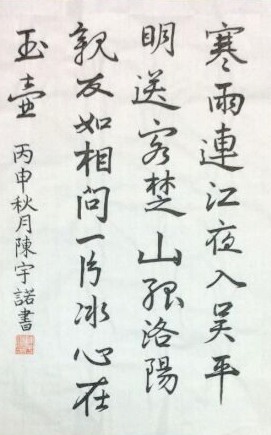 寒雨連江夜入吴平
明送客楚山孤洛陽
親友如相問一片冰心在
玉壶
丙申秋月陳宇諾書